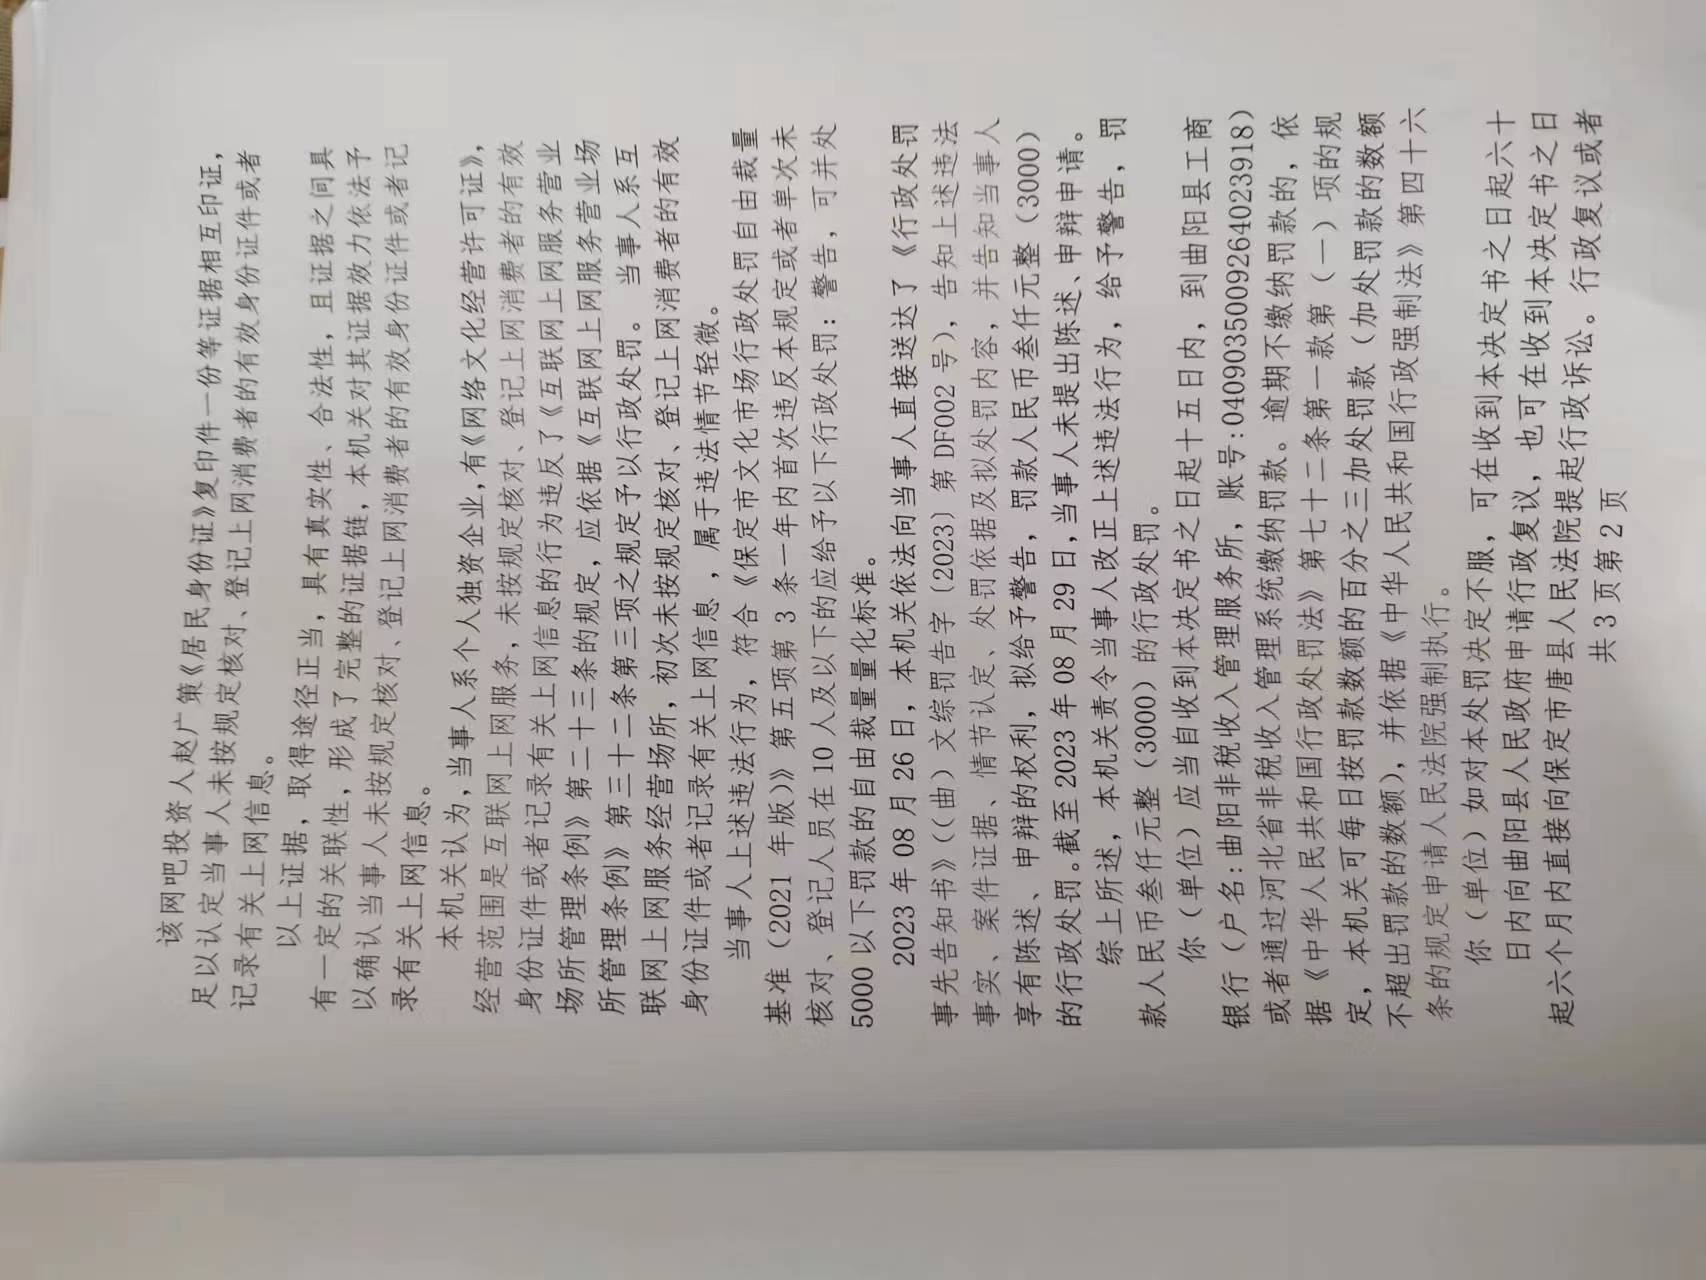 该网吧投资人赵广策《居民身份证》复印件一份等证据相互印证，
足以认定当事人未按规定核对、登记上网消费者的有效身份证件或者
记录有关上网信息。
以上证据，取得途径正当，具有真实性、合法性，且证据之间具
有一定的关联性，形成了完整的证据链，本机关对其证据效力依法予
以确认当事人未按规定核对、登记上网消费者的有效身份证件或者记
录有关上网信息。
本机关认为，当事人系个人独资企业，有《网络文化经营许可证》，
经营范围是互联网上网服务，未按规定核对、登记上网消费者的有效
身份证件或者记录有关上网信息的行为违反了《互联网上网服务营业
场所管理条例》第二十三条的规定，应依据《互联网上网服务营业场
所管理条例》第三十二条第三项之规定予以行政处罚。当事人系互
联网上网服务经营场所，初次未按规定核对、登记上网消费者的有效
身份证件或者记录有关上网信息，属于违法情节轻微。
当事人上述违法行为，符合《保定市文化市场行政处罚自由裁量
基准（2021 年版）》第五项第 3 条一年内首次违反本规定或者单次未
核对、登记人员在 10 人及以下的应给予以下行政处罚：警告，可并处
5000 以下罚款的自由裁量量化标准。
2023 年 08 月 26 日，本机关依法向当事人直接送达了《行政处罚
事先告知书》（（曲）文综罚告字〔2023〕第 DF002 号），告知上述违法
事实、案件证据、情节认定、处罚依据及拟处罚内容，并告知当事人
享有陈述、申辩的权利，拟给予警告，罚款人民币叁仟元整（3000）
的行政处罚。截至 2023 年 08 月 29 日，当事人未提出陈述、申辩申请。
综上所述，本机关责令当事人改正上述违法行为，给予警告，罚
款人民币叁仟元整（3000）的行政处罚。
你（单位）应当自收到本决定书之日起十五日内，到曲阳县工商
银行（户名：曲阳非税收入管理服务所，账号：0409035009264023918）
或者通过河北省非税收入管理系统缴纳罚款。逾期不缴纳罚款的，依
据《中华人民共和国行政处罚法》第七十二条第一款第（一）项的规
定，本机关可每日按罚款数额的百分之三加处罚款（加处罚款的数额
不超出罚款的数额），并依据《中华人民共和国行政强制法》第四十六
条的规定申请人民法院强制执行。
你（单位）如对本处罚决定不服，可在收到本决定书之日起六十
日内向曲阳县人民政府申请行政复议，也可在收到本决定书之日
起六个月内直接向保定市唐县人民法院提起行政诉讼。行政复议或者
共 3 页第 2 页